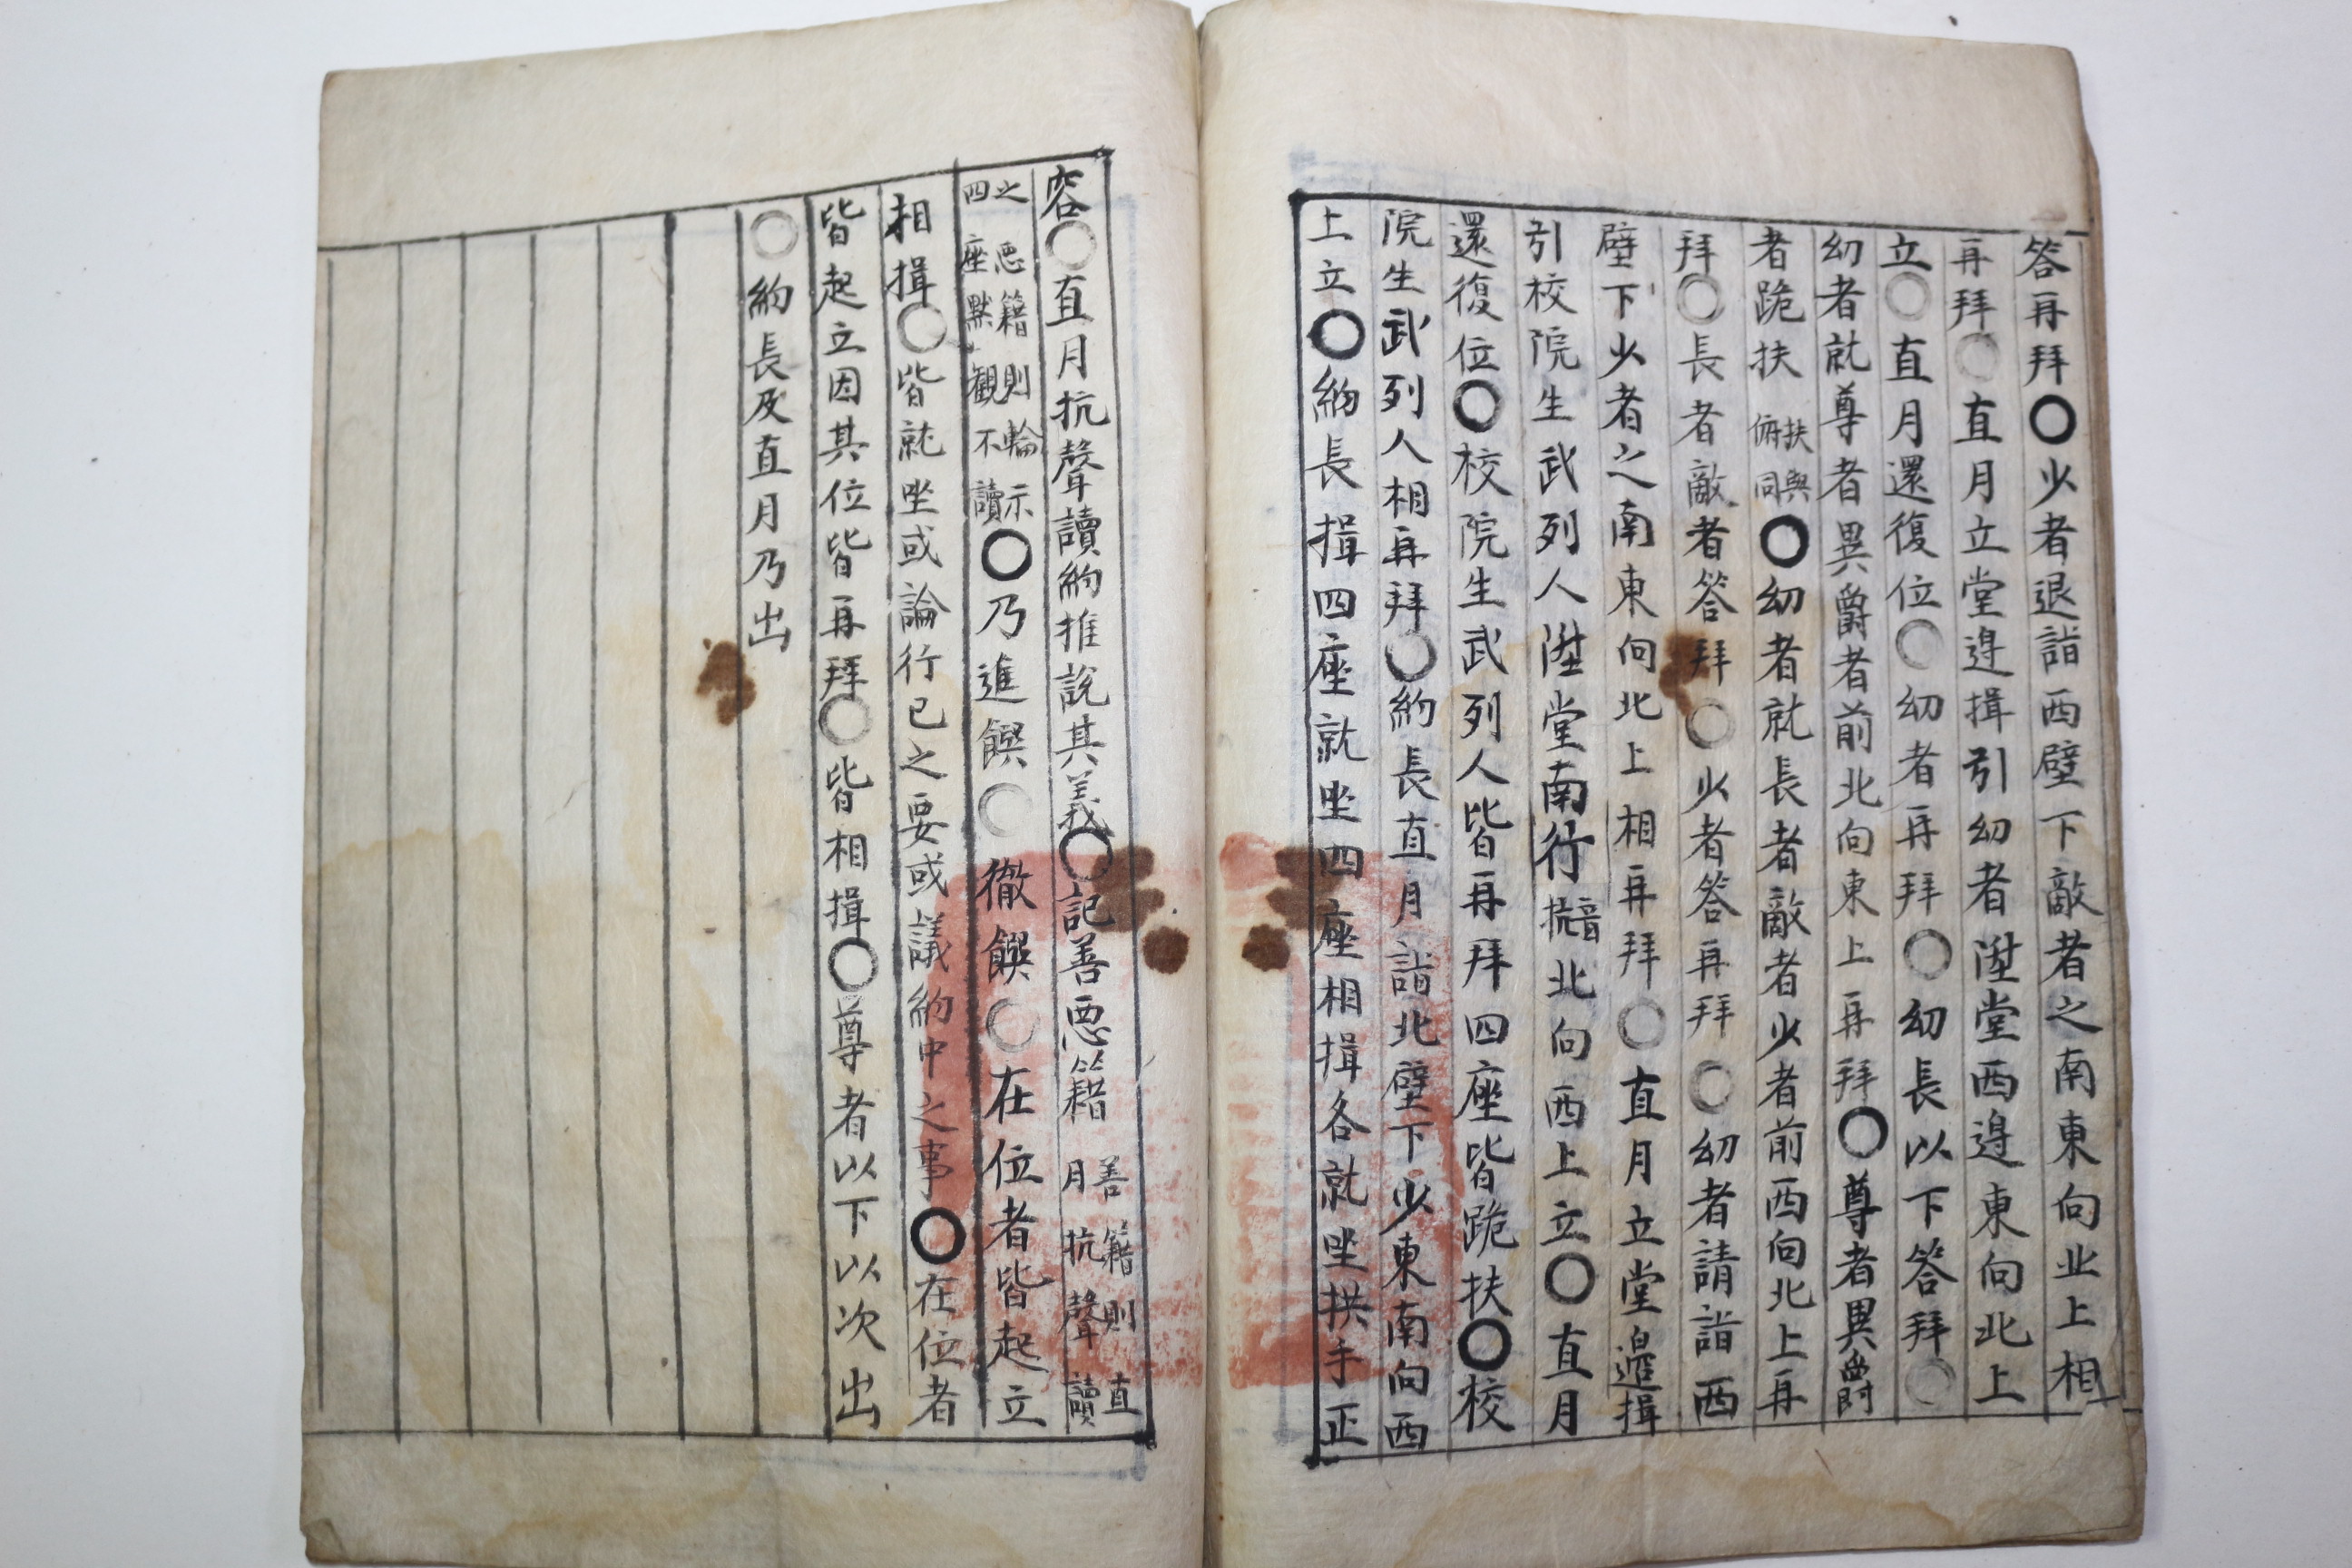 答再拜○少者退詣西壁下敵者之南東向北上相
再拜○直月立堂邉揖引幼者陞堂西邉東向北上
立○直月還復位○幼者再拜○幼長以下答拜○
幼者就尊者異爵者前北向東上再拜○尊者異爵
者跪扶扶與俯同○幼者就長者敵者少者前西向北上再
拜○長者敵者答拜○少者答再拜○幼者請詣西
壁下少者之南東向北上相再拜○直月立堂邉揖
引校院生武列人陞堂南行北向西上立○直月
還復位○校院生武列人皆再拜四座皆跪扶○校
院生武列人相再拜○約長直月詣北壁下少東南向西
上立○約長揖四座就坐四座相揖各就坐拱手正
容○直月抗聲讀約推說其義○記善惡籍善籍則直月抗聲讀
之惡籍則輪示四座默觀不讀○乃進饌○徹饌○在位者皆起立
相揖○皆就坐或論行已之要或議約中之事○在位者
皆起立因其位皆再拜○皆相揖○尊者以下以次出
○約長及直月乃出